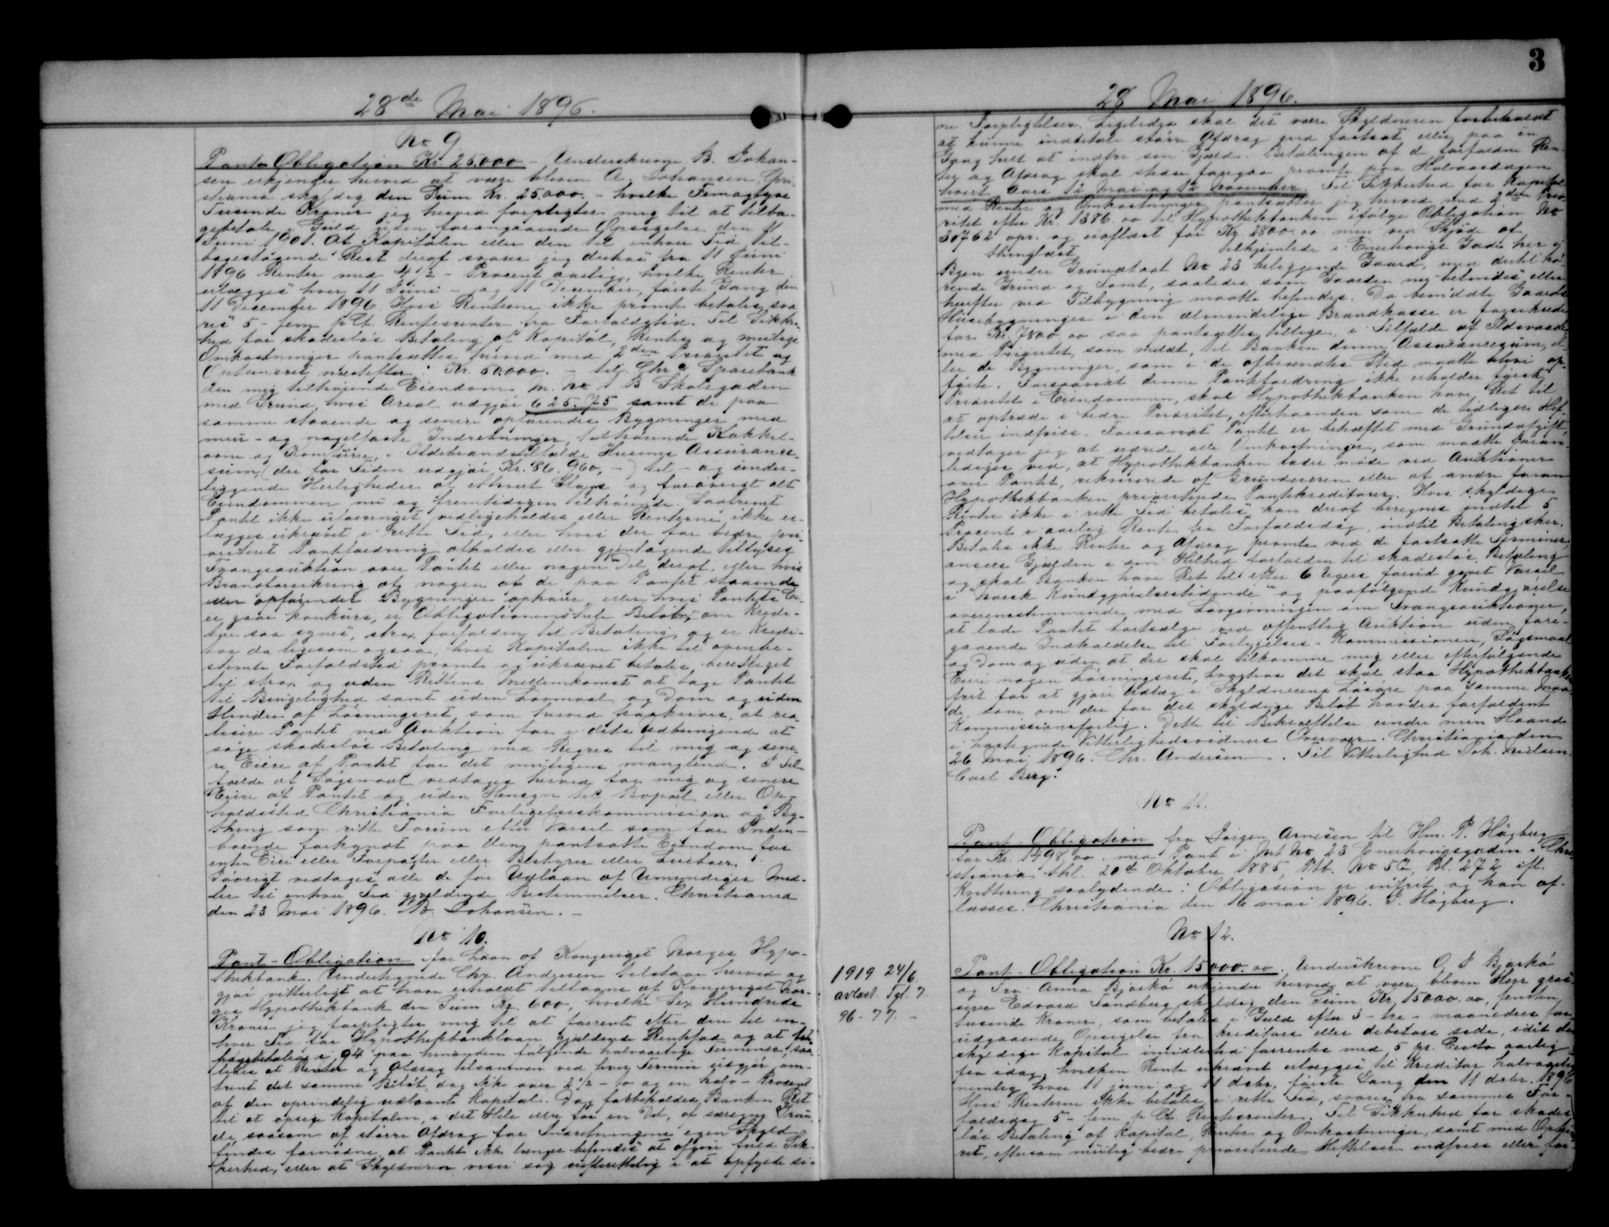 28de Mai 1896.
No 9
Pant-Obligation Kr. 25000 – Underskrevne B. Johan-
sen erkjender herved at være bleven A. Johansen, Chri-
stiania skyldig den Sum Kr. 25.000. – hvilke Fem og tyve
Tusende Kroner jeg herved forpligter mig til at tilba-
gebetale i Guld uden foregaaende Opsigelse den 11
Juni 1901. Af Kapitalen eller den til enhver Tid til-
bagestaaende Rest deraf svarer jeg derhos fra 11 Juni
1896 Renter med 4½ – Procent aarlig, hvilke Renter
erlægges hver 11 Juni – og 11 Desember, første Gang den
11 Desember 1896. Hvis Renterne ikke promt betales sva
res 5 – fem p. Ct. Rentesrenter fra Forfaldstid. Til Sikker-
hed for skadesløs Betaling af Kapital, Renter og mulige
Omkostninger pantsættes herved med 2den Prioritet og
Oprykningsret næstefter Kr. 50.000. – til Chra Sparebank
den mig tilhørende Eiendom M. No 1 B Skolegaden
med Grund, hvis Areal udgjør 625.75 samt de paa
samme staaende og senere opførende Bygninger med
mur- og nagelfaste Indretninger, tilhørende Kakkel-
ovne og Komfurer, i Ildebrandstilfælde Husenes Assurance-
sum (der for Tiden udgjør Kr. 86.960, –) til- og under-
liggende Herligheder af ethvert Slags og forøvrigt alt
Eiendommen nu og fremtidigen tilhørende. Saafremt
Pantet ikke uforringet vedligeholdes eller Renterne ikke er-
lægges ukrævet i rette Tid, eller hvis der for bedre pri-
oriteret Pantfordring afholdes eller gjentagende tillyses
Tvangsauktion over Pantet eller nogen Del deraf, eller hvis
Brandforsikring af nogen af de paa Pantet staaende
eller opførendes Bygninger ophører eller hvis Pantets Ei-
er gaar konkurs, er Obligationens hele Beløb, om Kredi-
tor saa synes, strax forfalden til Betaling og er Kredi-
tor da ligesom ogsaa, hvis Kapitalen ikke til ovenbe-
stemte Forfaldstid promte og ukrævet betales, berettiget
til strax og uden Rettens Mellemkomst at tage Pantet
til Brugelighed samt uden Lovmaal og Dom og uden
Hinder af Løsningsret, som herved frafalves, at rea-
lisere Pantet ved Auktion for i dets Udbringende at
søge skadesløs Betaling med Regres til mig og sene-
re Eiere af Pantet for det muligens manglende. I Til-
fælde af Søgsmaal vedtages herved for mig og senere
Eiere af Pantet og uden Hensyn til Bopæl eller Op-
holdssted Christiania Forligelseskommission og By-
thing som rette Forum efter Varsel som for Inden-
boende forkyndt paa den pantsatte Eiendom for
enten Eier eller Forpagter eller Bestyrer eller Leieboer.
Iøvrigt vedtages alle de for Udlaan af Umyndiges Mid-
ler til enhver Tid gjældende Bestemmelser. Christiania
den 23 Mai 1896. B. Johansen. –
No 10.
Pant-Obligation for Laan af Kongeriget Norges Hypo-
thekbank. Undertegnede Chr. Andersen tilstaar herved og
gjør vitterligt at have erholdt tillaans af Kongeriget Nor-
ges Hypothekbank den Sum Kr. 600, hvilke Sex Hundrede
Kroner jeg forpligter mig til at forrente efter den til en-
hver Tid for Hypothekbanklaan gjældende Rentefod og at til-
bagebetale i 94 paa hinanden følgende halvaarlige Terminer, saa-
ledes at Renter og Afdrag tilsammen ved hver Termin udgjør om-
trent det samme Beløb, dog ikke over 2½ – to og en halv – Procent
af den oprindelig udlaante Kapital. Dog forbeholdes Banken Ret
til at opsige Kapitalen, i det Hele eller for en Del, af særegne Grun-
de saasom at større Afdrag for Indretningens egen Skyld
findes fornødne, at Pantet ikke længer befindes at afgive fuld Sik-
kerhed, eller at Skyldneren viser sig uefterrettelig i at opfylde si-
3
28 Mai 1896.
ne Forpligtelser. Ligeledes skal det være Skyldneren forbeholdt
at kunne indbetale større Afdrag end fastsat eller paa én
Gang helt at indfri sin Gjæld. Betalingen af de forfaldne Ren-
ter og Afdrag skal stedse foregaa promte paa Halvaarsdagen
hvert Aars 12 mai og 12 november. Til Sikkerhed for Kapital
med Renter og Omkostninger pantsætter jeg herved med 2den Prio-
ritet efter Kr. 1386.00 til Hypothekbanken ifølge Obligation No
30762 opr. og nedlaast for Kr. 2800.00 min ved Skjøde af
thinglæst tilhjemlede i Enerhougt Gade her i
Byen under Grundtaxt No 23 beliggende Gaard, med dertil hø-
rende Grund og Tomt, saaledes som Gaarden nu befindes eller
herefter ved Tilbygning maatte befindes. Da bemeldte Gaards
Husebygninger i den almindelige Brandkasse er forsikrede
for Kr. 7800.00 saa pantsættes tillige i Tilfælde af Ildsvaade
med Prioritet, som meldt, til Banken denne Assurancesum, el-
ler de Bygninger, som i de afbrændtes Sted maatte blive op-
førte. Forsaavidt denne Pantfordring ikke erholder første
Prioritet i Eiendommen, skal Hypothekbanken have Ret til
at optræde i bedre Prioritet, efterhaanden som de tidligere Hef-
telser indfries. Forsaavidt Pantet er behæftet med Grundafgift,
vedtager jeg at udrede alle Omkostninger, som maatte foran-
lediges ved, at Hypothekbanken lader møde ved Auktioner
over Pantet, rekvirerede af Grundeieren eller af andre foran
Hypothekbanken prioriterede Pantkreditorer. Hvis skyldige
Renter ikke i rette Tid betales kan deraf beregnes indtil 5
Procent i aarlig Rente fra Forfaldsdag indtil Betaling sker.
Betales ikke Renter og Afdrag promte ved de fastsatte Terminer
ansees Gjælden i sin Helhed forfalden til skadesløs Betaling
og skal Banken have Ret til efter 6 Ugers forud givet Varsel
i "norsk Kundgjørelsestidende" og paafølgend Kundgjørelse
overensstemmende med Lovgivningen om Tvangsauktioner,
at lade Pantet bortsælge ved offentlig Auktion uden fore-
gaaende Indkaldelse til Forligelses-Kommissionen, Søgsmaal
og Dom og uden at der skal tilkomme mig eller efterfølgende
Eiere nogen Løsningsret, hvorhos det skal staa Hypothekbanken
frit for at gjøre Udlæg i Skyldnerens Løsøre paa samme Maa-
de som om der for det skyldige Beløb havdes forfaldent
Kommissionsforlig. Dette til Bekræftelse under min Haand
i hostegnede Vitterlighedsvidners Overvær. Christiania den
26 mai 1896. Chr. Andersen. Til Vitterlighed Joh. Neilsen.
Carl Berg.
No 11.
Pant-Obligation fra Jørgen Arnesen til Hm. P. Høgberg
for Kr. 1498.00 med Pant i Mat No 23 Enerhougsgaden i Chri-
stiania, thl. 20de Oktober 1885, Ptb. No 52, Bl. 272 ifl.
Kvittering saalydende: Obligasion er infrit og kan af-
læses. Christiania den 16 mai 1896. P. Høgberg.
No 12.
1919 24/6
avlæst. Tgl. 7.
96 – 77. –
Pant-Obligation Kr. 15000.00. Underskrevne O. J. Bjerkø
og Fru Anna Bjerkø erkjender herved at være bleven Herr gros-
serer Edvard Sandberg skyldig den Sum Kr. 15000.00, femten
tusende Kroner, som betales i Guld efter 3 – tre – maaneders for-
udgaaende Opsigelse fra kreditors eller debetors side, idet den
skyldige Kapital imidlertid forrentes med 5 pr. Cento aarlig
fra idag, hvilken Rente ukrævet erlægges til Kreditor halvaarlig
nemlig hver 11 juni og 11 debr, første Gang den 11 debr. 1896
Hvis Renterne ikke betales i rette Tid, svares fra samme For-
faldsdag 5 – fem p. Ct. Rentesrenter. Til Sikkerhed for skades-
løs Betaling af Kapital, Renter og Omkostninger, samt med Opryk-
ret, eftersom mulig bedre prioriterede Heftelser indfries eller for-